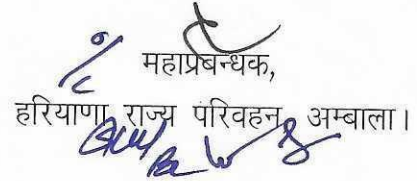 महाप्रबन्धक,
हरियाणा राज्य परिवहन, अम्बाला।